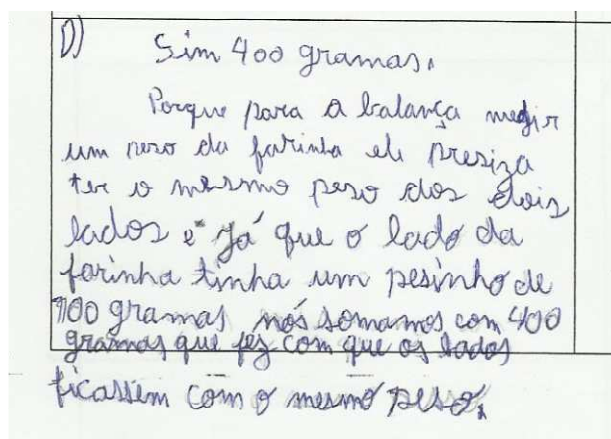 D) Sim 400 gramas.
Porque para a balança medir
um peso da farinha ele presiza
ter o mesmo peso dos dois
lados e já que o lado da
farinha tinha um pesinho de
100 gramas nós somamos com 400
gramas que fez com que os lados
ficassem com o mesmo peso.